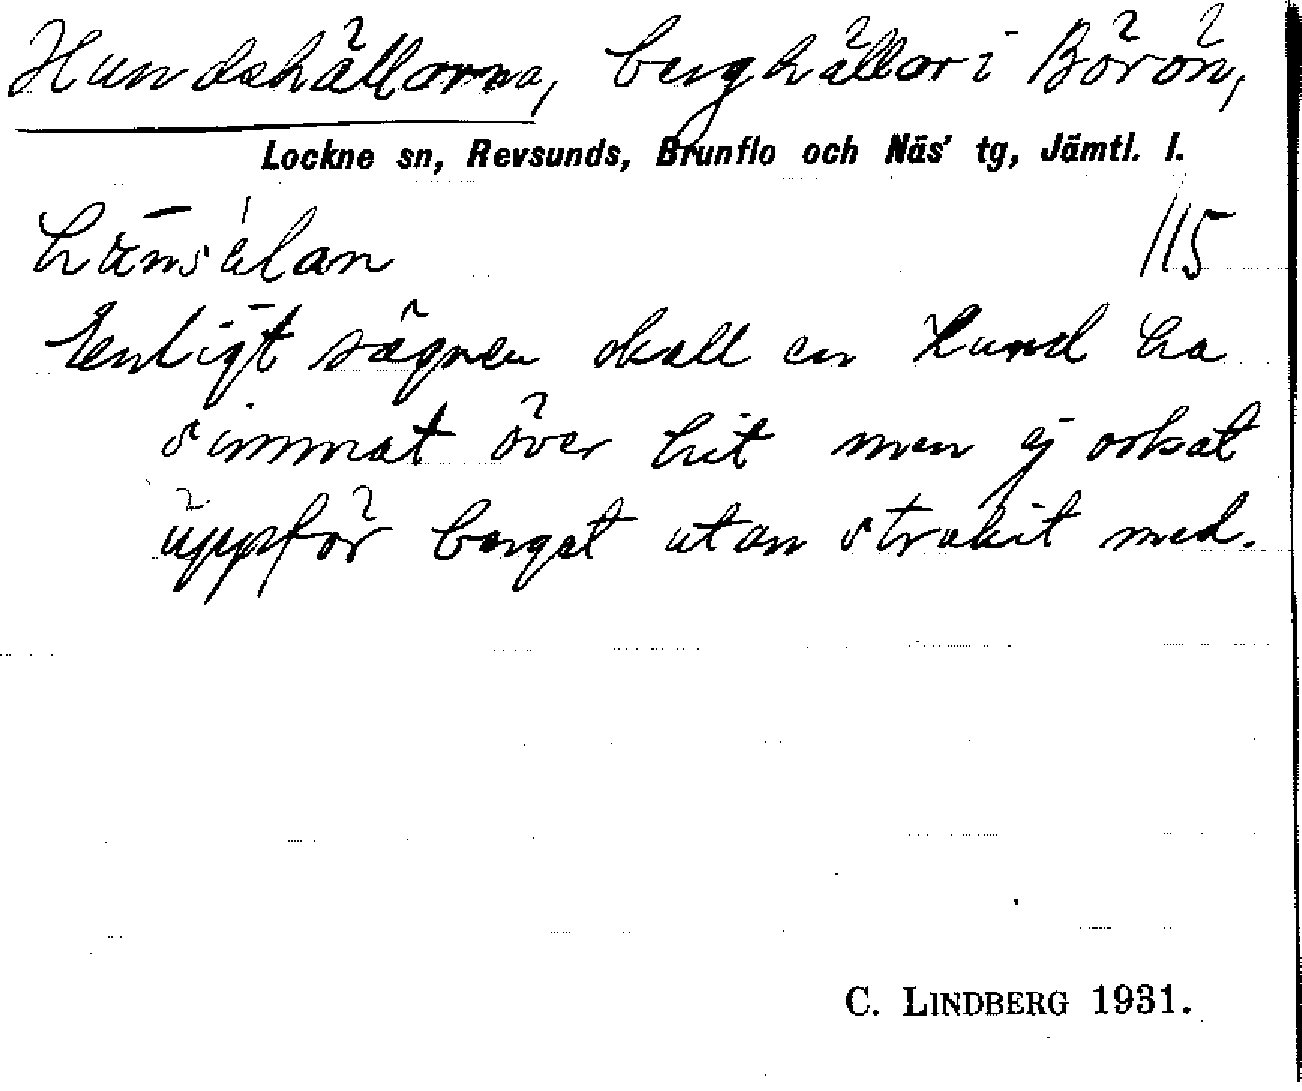 Hundshällarna, berghällar i Börön,
Lockne sn, Revsunds, Brunflo och Näs' tg, Jämtl. l.
115
Enligt sägnen skall en hund ha
simmat över hit men ej orkat
uppför berget utan strukit med.
C. LINDBERG 1931.